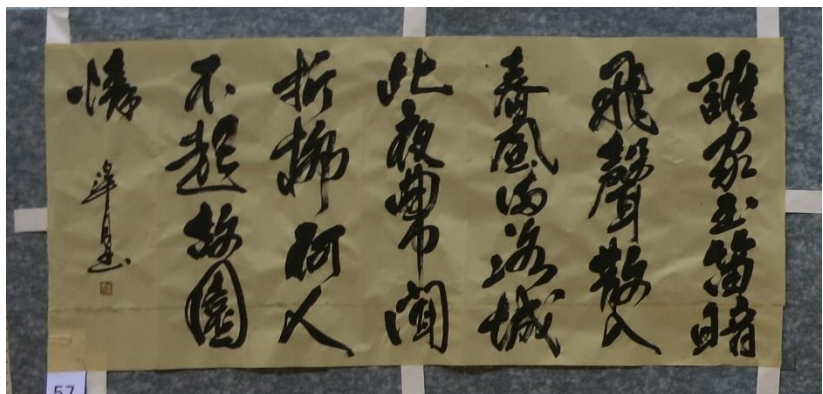 誰家玉笛暗
飛聲散入
春風滿洛城
此夜曲中聞
折柳何人
不起故園
情
57